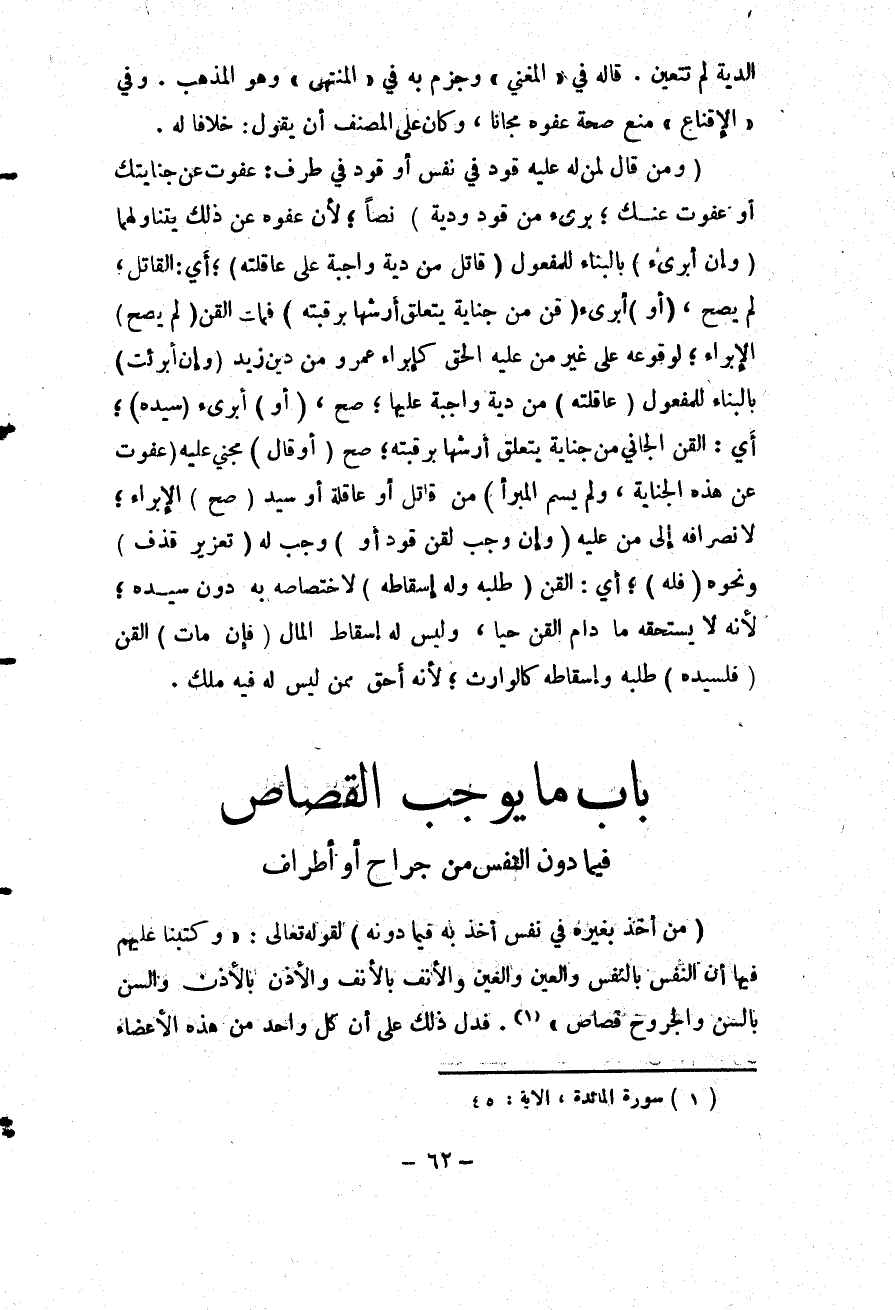 الدية لم تتعين . قاله في « المغني » وجزم به في « المنتهى » وهو المذهب . وفي
« الإقناع » منع صحة عفوه مجانا ، وكان على المصنف أن يقول : خلافا له .
( ومن قال لمن له عليه قود في نفس أو قود في طرف : عفوت عن جنايتك
أو عفوت عنــك ؛ برىء من قود ودية ) نصاً ؛ لأن عفوه عن ذلك يتناولهما
( وإن أبرىُء ) بالبناء للمفعول ( قاتل من دية واجبة على عاقلته ) ؛ أي : القاتل ؛
لم يصح ، ( أو ) أبرىء ( قن من جناية يتعلق أرشها برقبته ) فمات القن ( لم يصح )
الإبراء ؛ لوقوعه على غير من عليه الحق كإبراء عمرو من دين زيد ( وإن أبرئت )
بالبناء للمفعول ( عاقلته ) من دية واجبة عليها ؛ صح ، ( أو ) أبرىء ( سيده ) ؛
أي : القن الجاني من جناية يتعلق أرشها برقبته ؛ صح ( أو قال ) مجني عليه ( عفوت
عن هذه الجناية ، ولم يسم المبرأ ) من قاتل أو عاقلة أو سيد ( صح ) الإبراء ؛
لانصرافه إلى من عليه ( وإن وجب لقن قود أو ) وجب له ( تعزير قذف )
ونحوه ( فله ) ؛ أي : القن ( طلبه وله إسقاطه ) لاختصاصه به دون سيــده ؛
لأنه لا يستحقه ما دام القن حيا ، وليس له إسقاط المال ( فإن مات ) القن
( فلسيده ) طلبه وإسقاطه كالوارث ؛ لأنه أحق ممن ليس له فيه ملك .
باب ما يوجب القصاص
فيما دون النفس من جراح أو أطراف
( من أخذ بغيره في نفس أخذ به فيما دونه ) لقوله تعالى : « وكتبنا عليهم
فيها أن النفس بالنفس والعين والعين والأنف بالأنف والأذن بالأذن والسن
بالسن والجروح قصاص » (١) . فدل ذلك على أن كل واحد من هذه الأعضاء
( ١ ) سورة المائدة ، الاية : ٤٥
– ٦٢ –